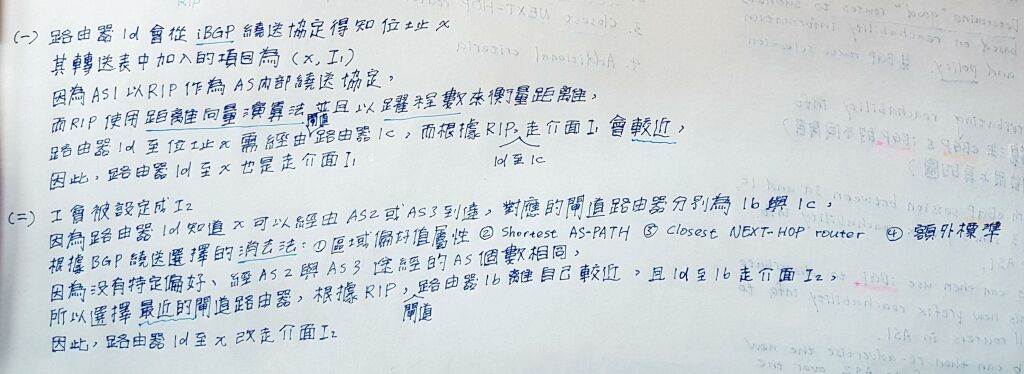 (一) 路由器 1d 會從 iBGP 繞送協定得知位址 x
其轉送表中加入的項目為 (x, I₁)
因為 AS1 以 RIP 作為 AS 內部繞送協定，
而 RIP 使用距離向量演算法並且以躍程數來衡量距離，
路由器 1d 至位址 x 需經由閘道路由器 1c，而根據 RIP，1d至1c 走介面 I₁ 會較近，
因此，路由器 1d 至 x 也是走介面 I₁
(二) I 會被設定成 I₂
因為路由器 1d 知道 x 可以經由 AS2 或 AS3 到達，對應的閘道路由器分別為 1b 與 1c，
根據 BGP 繞送選擇的消去法：① 區域偏好值屬性 ② Shortest AS-PATH ③ Closest NEXT-HOP router ④ 額外標準
因為沒有特定偏好、經 AS2 與 AS3 途經的 AS 個數相同，
所以選擇最近的閘道路由器，根據 RIP，閘道路由器 1b 離自己較近，且 1d 至 1b 走介面 I₂，
因此，路由器 1d 至 x 改走介面 I₂